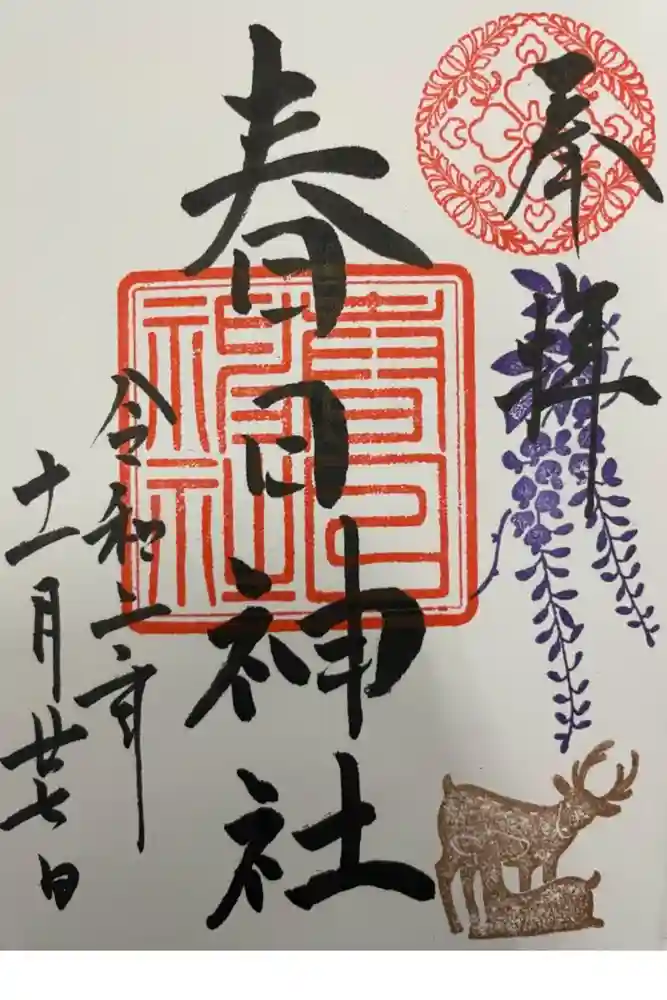 奉拝
春日神社
春日神社
令和二年
十一月廿七日